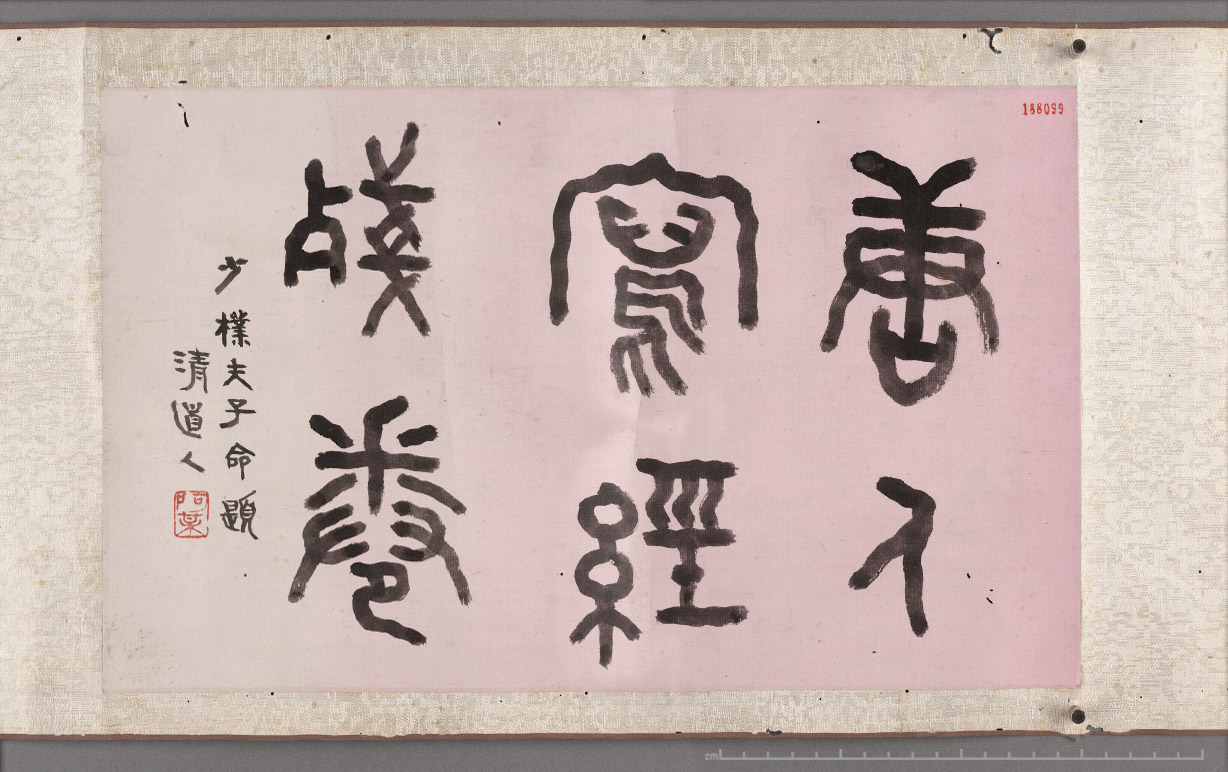 188099
唐人
寫經
殘卷
少樸夫子命題
清道人
阿某
cm